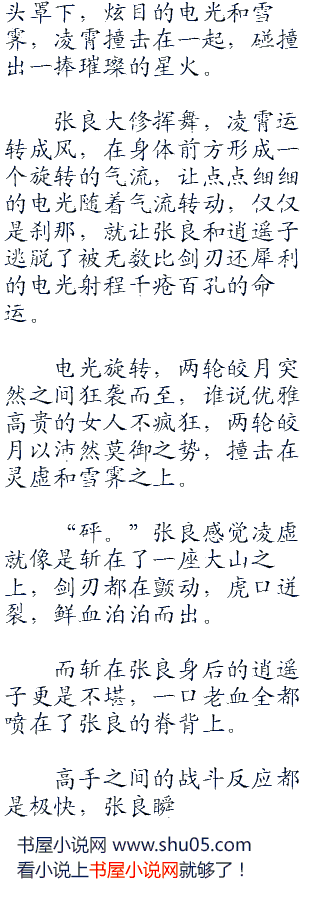 头罩下，炫目的电光和雪
霁，凌霄撞击在一起，碰撞
出一捧璀璨的星火。
张良大修挥舞，凌霄运
转成风，在身体前方形成一
个旋转的气流，让点点细细
的电光随着气流转动，仅仅
是刹那，就让张良和逍遥子
逃脱了被无数比剑刃还犀利
的电光射程千疮百孔的命
运。
电光旋转，两轮皎月突
然之间狂袭而至，谁说优雅
高贵的女人不疯狂，两轮皎
月以沛然莫御之势，撞击在
灵虚和雪霁之上。
“砰。”张良感觉凌虚
就像是斩在了一座大山之
上，剑刃都在颤动，虎口迸
裂，鲜血泊泊而出。
而斩在张良身后的逍遥
子更是不堪，一口老血全都
喷在了张良的脊背上。
高手之间的战斗反应都
是极快，张良瞬
书屋小说网 www.shu05.com
看小说上书屋小说网就够了！